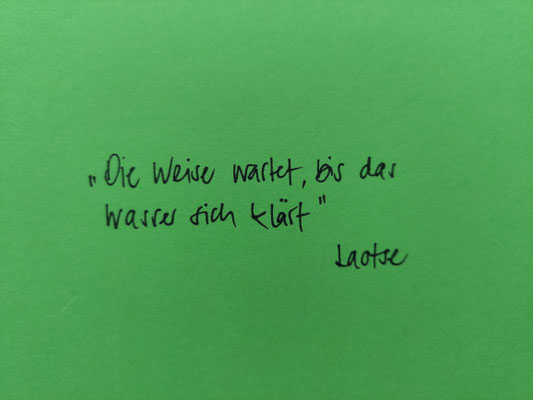 „Die Weise wartet, bis das
Wasser sich klärt"
Laotse